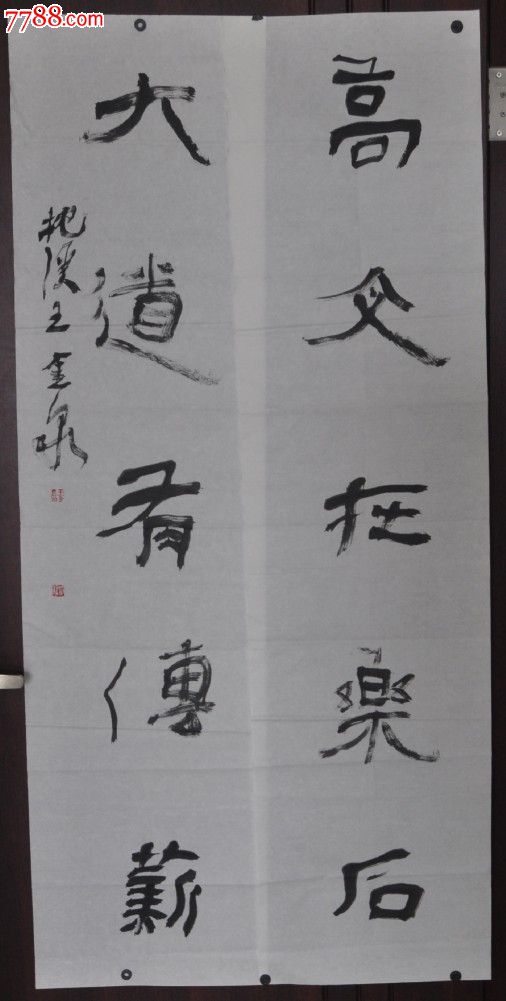 7788.com
高文在樂石
大道有傳薪
王金泉